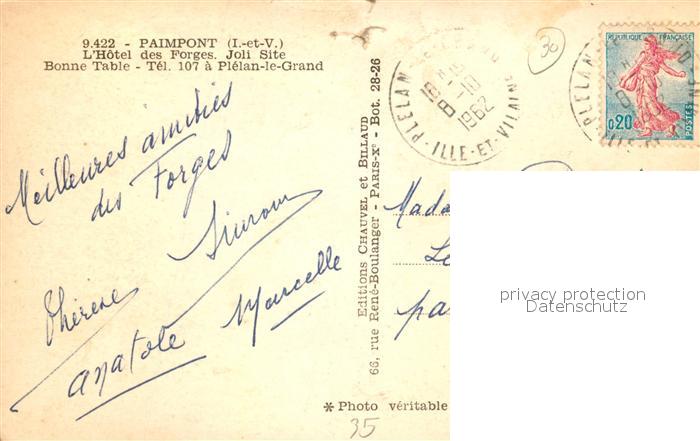 9.422 - PAIMPONT (I.-et-V.)
L'Hôtel des Forges. Joli Site
Bonne Table - Tél. 107 à Plélan-le-Grand
Meilleures amitiés
des Forges
Simone
Thérèse
Marcelle
Anatole
Editions CHAUVEL et BILLAUD
66, rue René-Boulanger - PARIS-Xe - Bot. 28-26
* Photo véritable
35
30
PLELAN
18
8-10
1962
ILLE-ET-VILAINE
REPUBLIQUE FRANÇAISE
0,20
POSTES
PLELAN
Mada
Le
par
privacy protection
Datenschutz